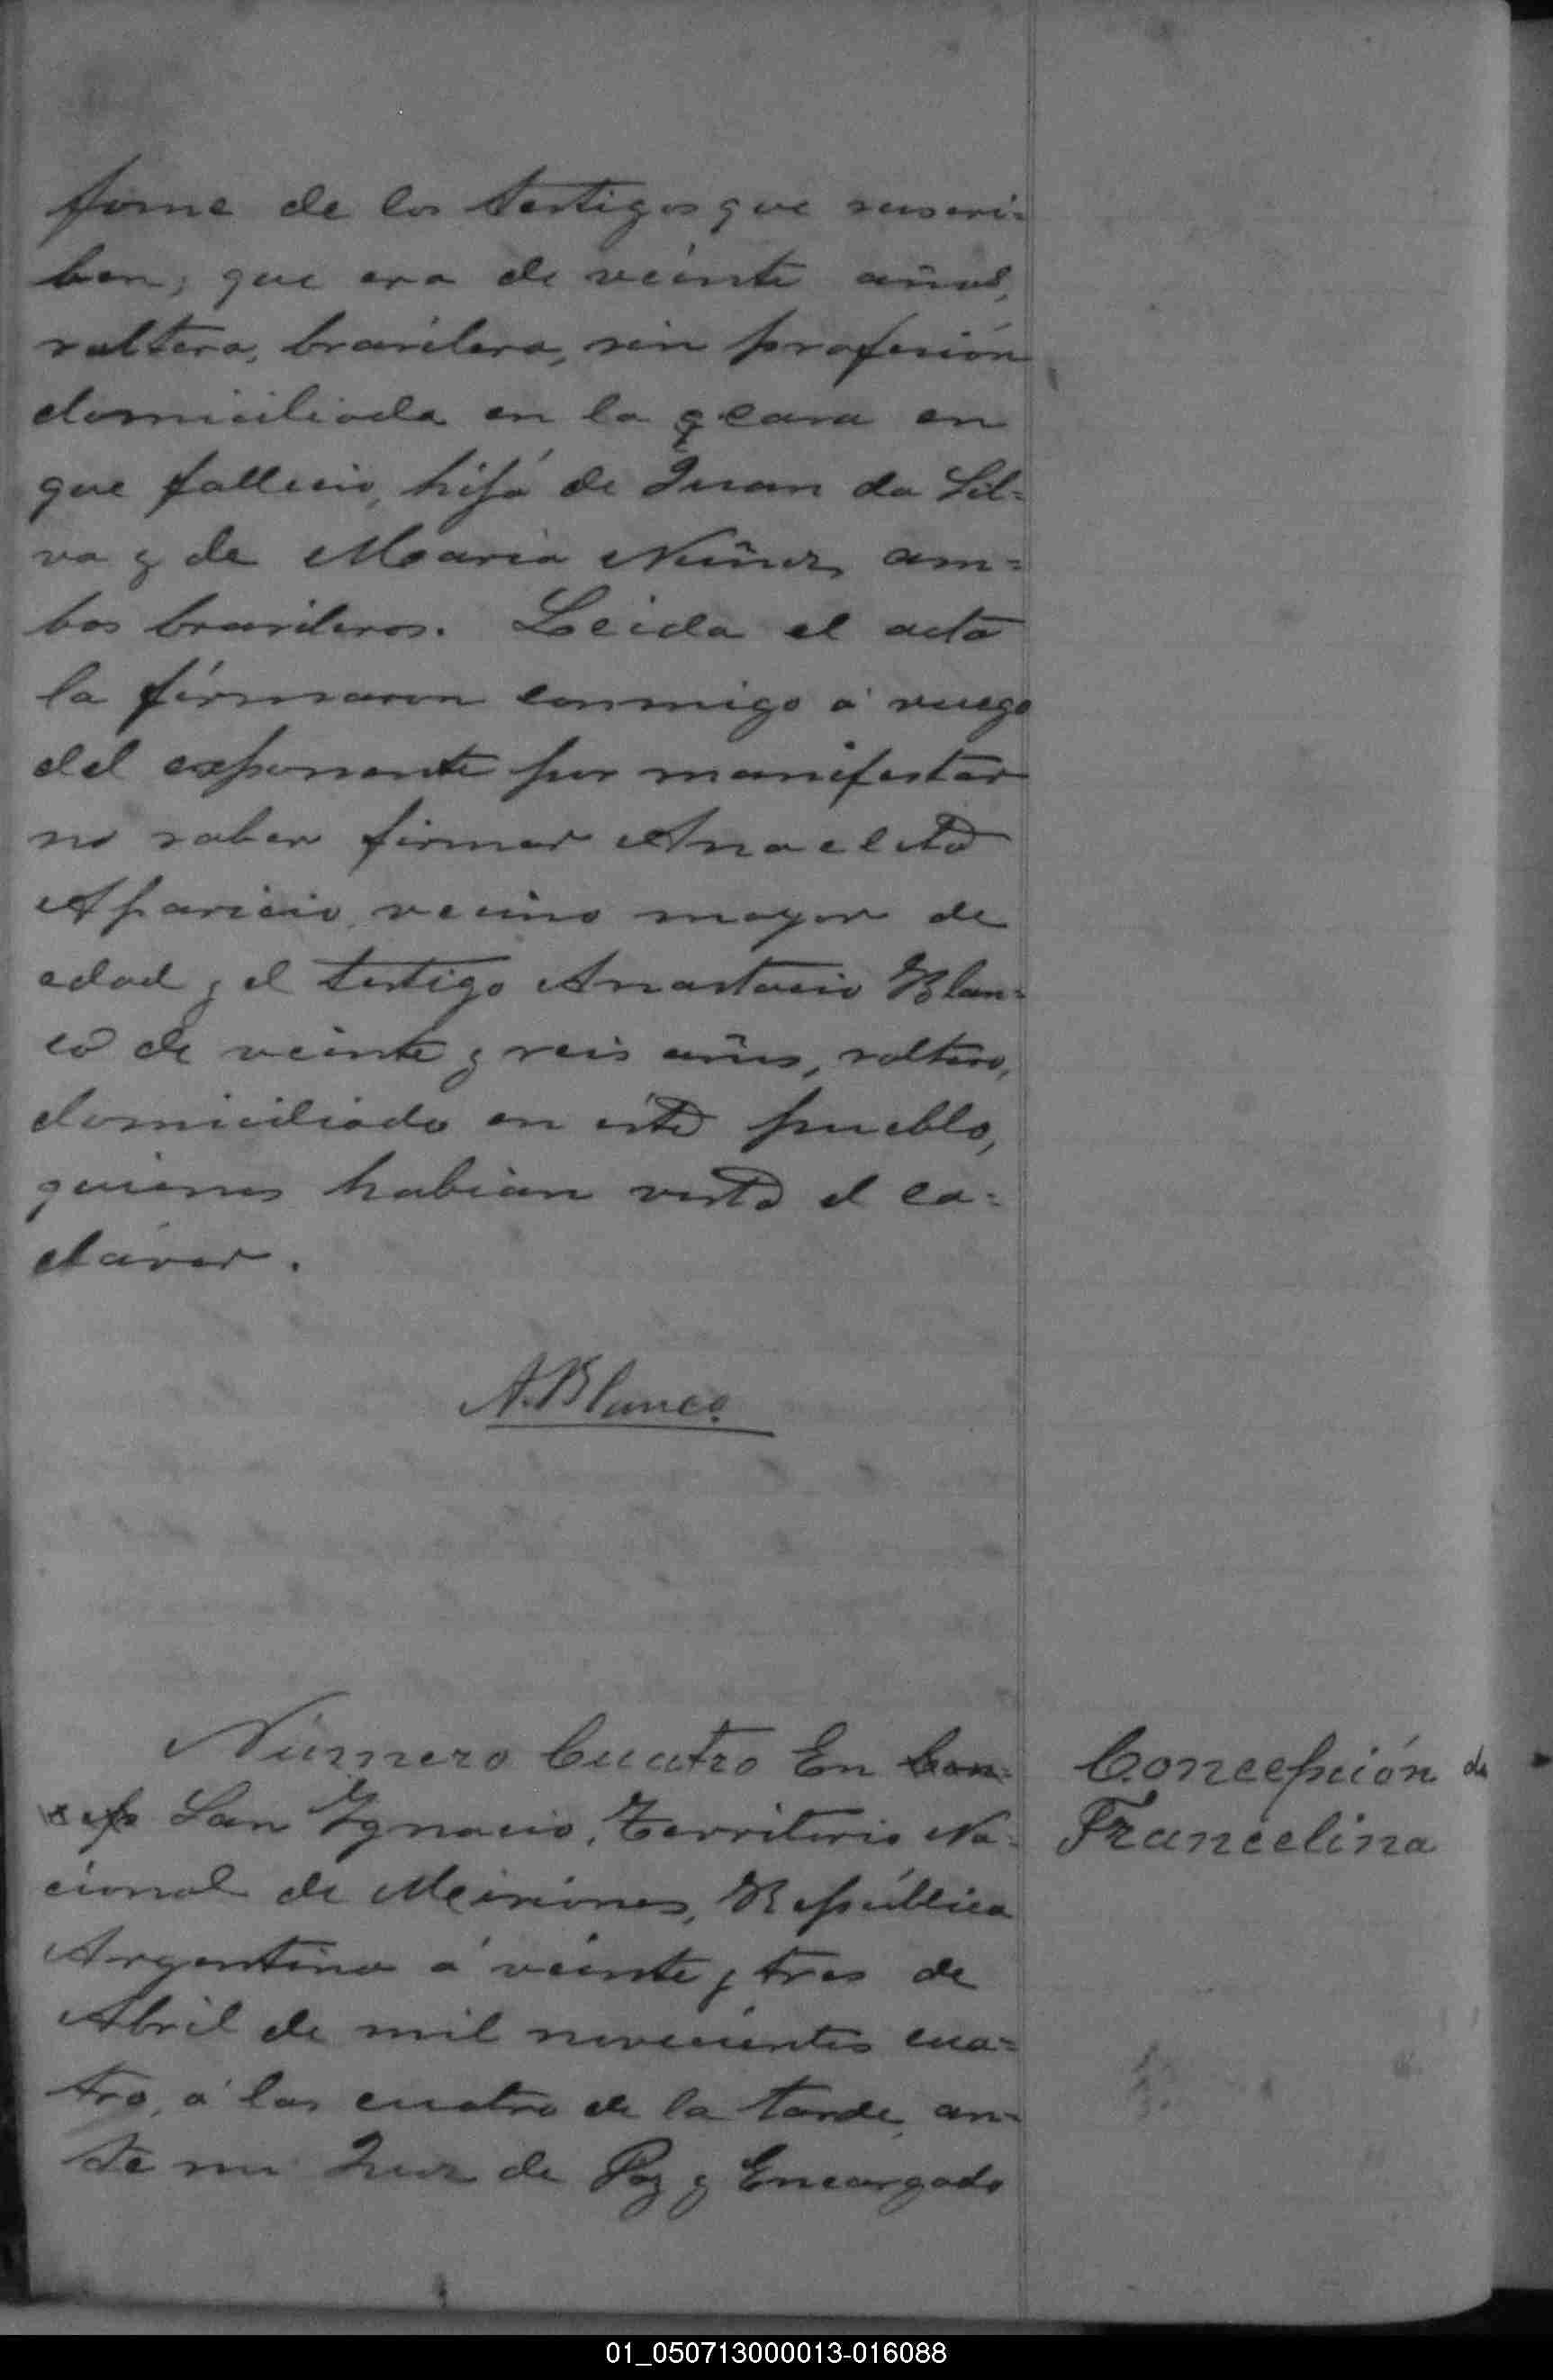 forme de los testigos que suscri=
ben; que era de veinte años,
soltera, brasilera, sin profesión
domiciliada en la casa en
que falleció, hija de Juan da Sil=
va y de Maria Nuñez am=
bos brasileros. Leida el acta
la firmaron conmigo á ruego
del exponente por manifestar
no saber firmar Anacleto
Aparicio, vecino mayor de
edad y el testigo Anastacio Blan=
co de veinte y seis años, soltero,
domiciliado en este pueblo,
quienes habian visto el ca=
dáver.
A. Blanco.
Número Cuatro En Con=
San Ygnacio, Territorio Na=
cional de Misiones, República
Argentina á veinte y tres de
Abril de mil novecientos cua=
tro, á las cuatro de la tarde, an=
te mi Juez de Paz y Encargado
Concepción da
Francelina
01_050713000013-016088